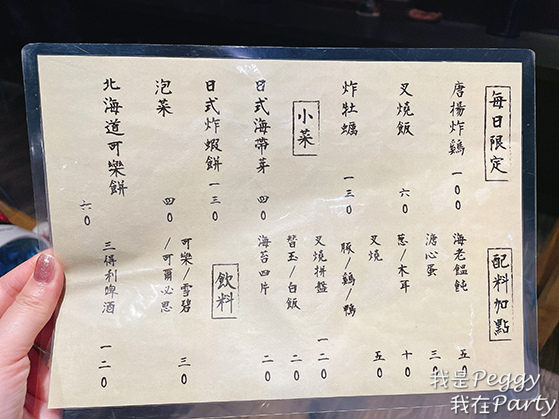 每日限定
唐揚炸鷄 一00
叉燒飯 六0
炸牡蠣 一三0
小菜
日式海帶芽 四0
日式炸蝦餅 一三0
泡菜 四0
北海道可樂餅 六0
配料加點
海老餛飩 五0
溏心蛋 三0
蔥/木耳 十0
叉燒
豚/鷄/鴨 五0
叉燒拼盤 一二0
替玉/白飯 二0
海苔四片 二0
飲料
可樂/雪碧
/可爾必思 三0
三得利啤酒 一二0
我是Peggy
我在Party